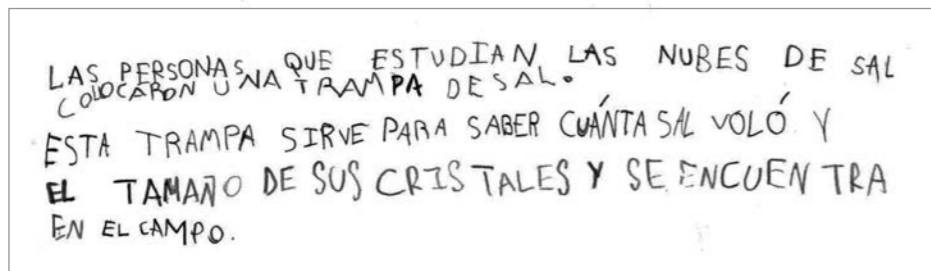 LAS PERSONAS QUE ESTUDIAN LAS NUBES DE SAL
COLOCARON UNA TRAMPA DE SAL.
ESTA TRAMPA SIRVE PARA SABER CUÁNTA SAL VOLÓ Y
EL TAMAÑO DE SUS CRISTALES Y SE ENCUENTRA
EN EL CAMPO.